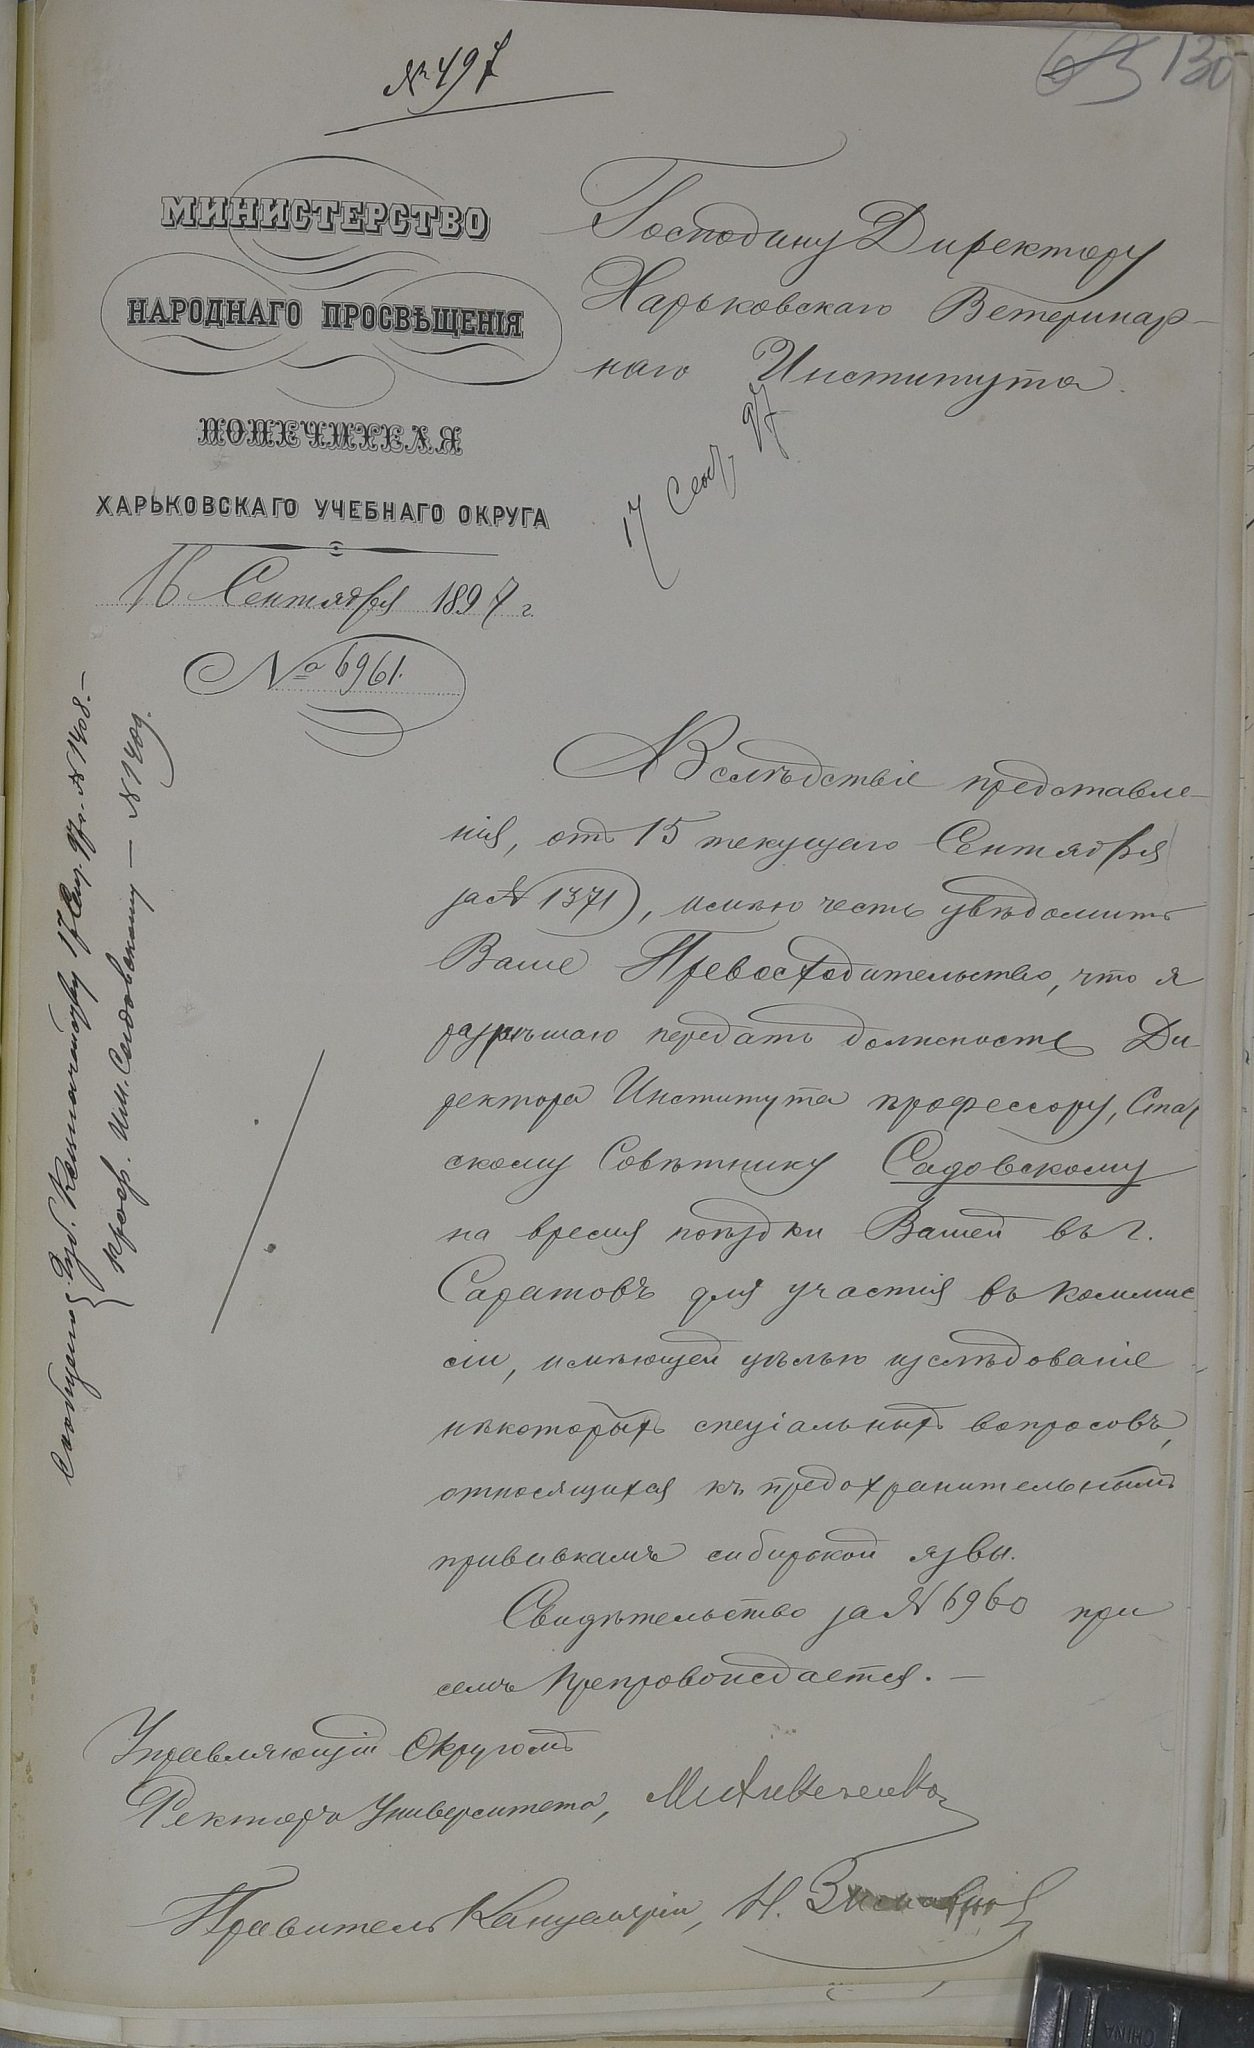 № 497
63 130
МИНИСТЕРСТВО
НАРОДНАГО ПРОСВѢЩЕНІЯ
ПОПЕЧИТЕЛЯ
ХАРЬКОВСКАГО УЧЕБНАГО ОКРУГА
16 Сентября 1897 г.
№ 6961.
Господину Директору
Харьковскаго Ветеринар-
наго Института.
17 Сент. 97
Вслѣдствіе представле-
нія, отъ 15 текущаго Сентября
за № 1371, имѣю честь увѣдомить
Ваше Превосходительство, что я
разрѣшаю передать должность Ди-
ректора Института профессору, Стат-
скому Совѣтнику Садовскому
на время поѣздки Вашей въ г.
Саратовъ для участія въ коммис-
сіи, имѣющей цѣлью изслѣдованіе
нѣкоторыхъ спеціальныхъ вопросовъ,
относящихся къ предохранительнымъ
прививкамъ сибирской язвы.
Свидѣтельство за № 6960 при
семъ препровождается. —
Управляющій Округомъ
Ректоръ Университета,
Правитель Канцеляріи, Н.
Сообщено Губ. Казначейству 17 Сент. 97 г. № 1408. —
Проф. Им. Садовскому — № 1409.
CHINA